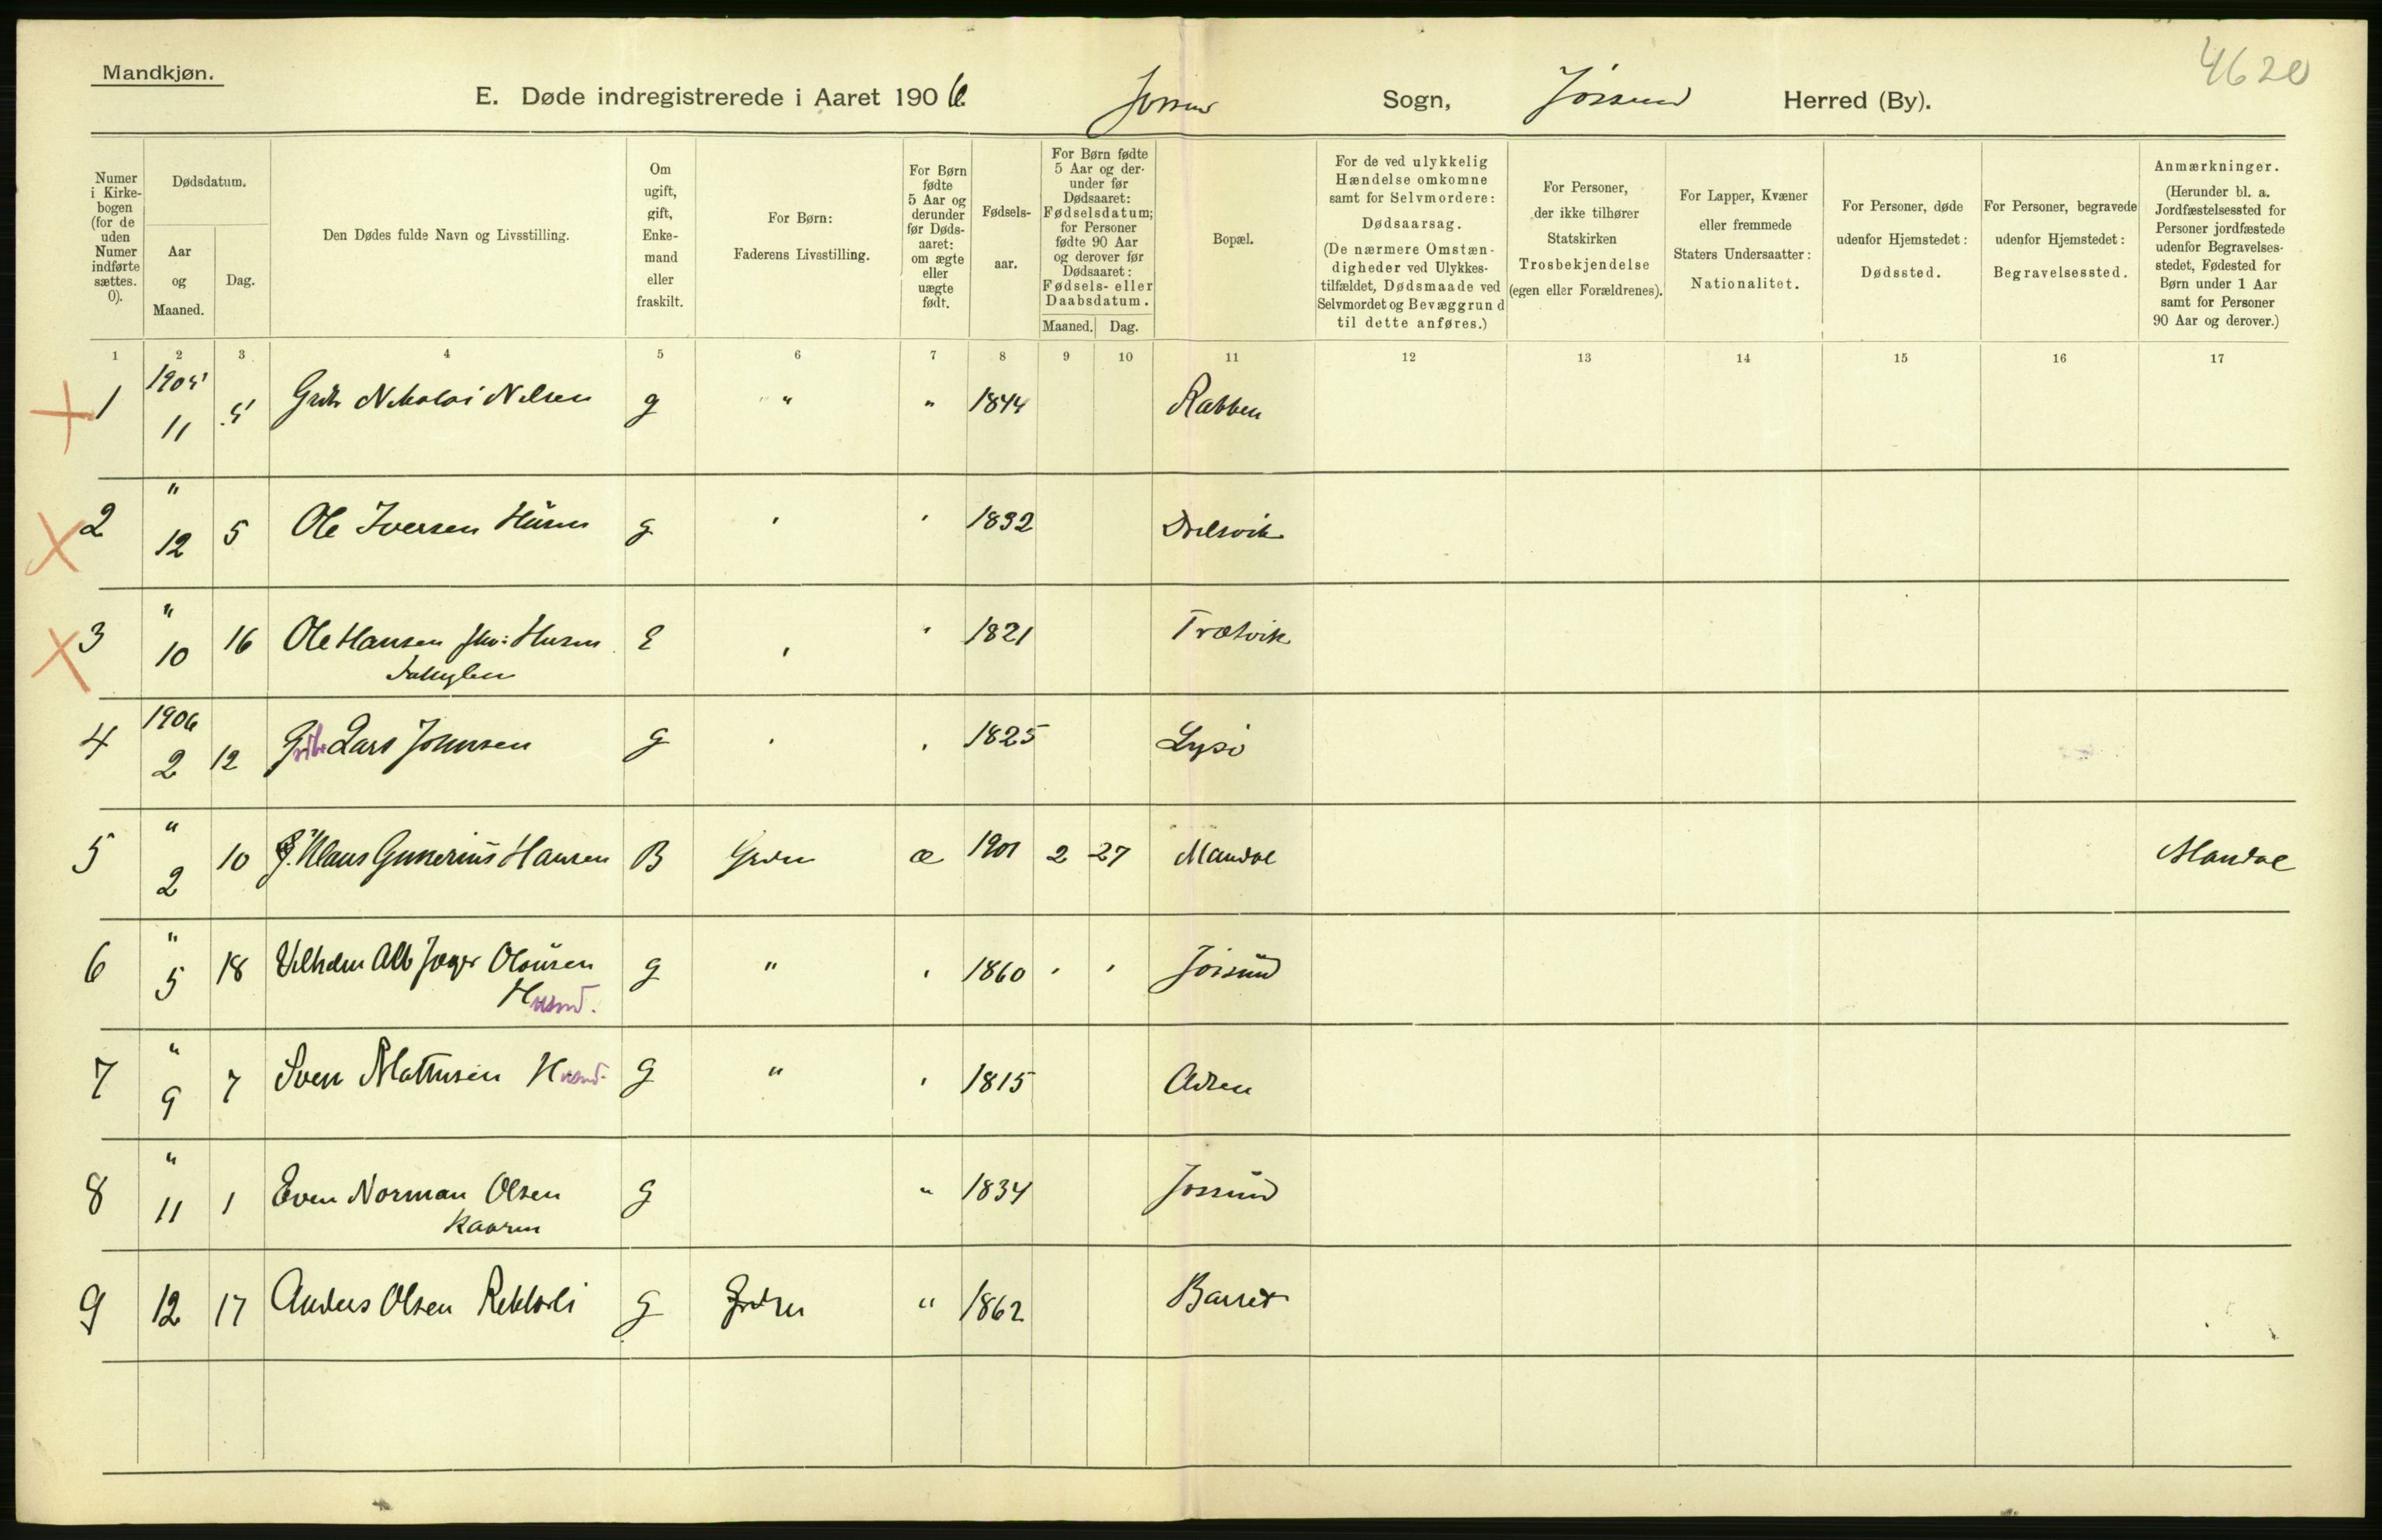 Mandkjøn.
4620
E. Døde indregistrerede i Aaret 1906. Jossund Sogn, Jössund Herred (By).
Numer i Kirkebogen (for de uden Numer indførte sættes. 0).
Dødsdatum.
Aar og Maaned.
Dag.
Den Dødes fulde Navn og Livsstilling.
Om ugift, gift, Enkemand eller fraskilt.
For Børn: Faderens Livsstilling.
For Børn fødte 5 Aar og derunder før Dødsaaret: om ægte eller uægte født.
Fødselsaar.
For Børn fødte 5 Aar og derunder før Dødsaaret: Fødselsdatum; for Personer fødte 90 Aar og derover før Dødsaaret: Fødsels- eller Daabsdatum.
Maaned. Dag.
Bopæl.
For de ved ulykkelig Hændelse omkomne samt for Selvmordere: Dødsaarsag. (De nærmere Omstændigheder ved Ulykkestilfældet, Dødsmaade ved Selvmordet og Bevæggrund til dette anføres.)
For Personer, der ikke tilhører Statskirken Trosbekjendelse (egen eller Forældrenes).
For Lapper, Kvæner eller fremmede Staters Undersaatter: Nationalitet.
For Personer, døde udenfor Hjemstedet: Dødssted.
For Personer, begravede udenfor Hjemstedet: Begravelsessted.
Anmærkninger. (Herunder bl. a. Jordfæstelsessted for Personer jordfæstede udenfor Begravelsesstedet, Fødested for Børn under 1 Aar samt for Personer 90 Aar og derover.)
1 2 3 4 5 6 7 8 9 10 11 12 13 14 15 16 17
1 1905 11 5 Nikolai Nilsen g " " 1844 Rabben
2 " 12 5 Ole Iversen g 1832
3 " 10 16 Ole Hansen E 1821 Trætvik
4 1906 2 12 Lars Johnsen g 1825 Lysö
5 " 2 10 Klaus Gunerius Hansen B æ 1901 2 27 Mandal Mandal
6 " 5 18 Vilhelm Alb Jæger Olausen g " 1860 Jössund
7 " 9 7 Sven Mathisen g " 1815
8 " 11 1 Even Norman Olsen g " 1834 Jossund
9 12 17 Anders Olsen g " 1862